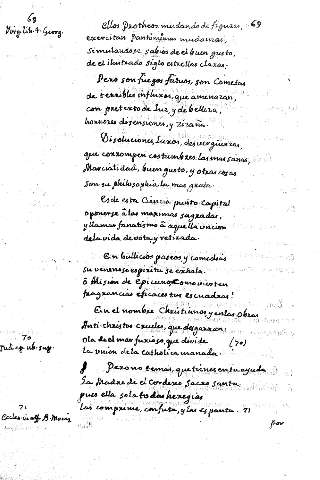 68
Virg. lib. 4. Georg.
69
Ellos Protheos mudando de figuras,
exercitan Pantomimas mudanzas,
simulandose sabios de el buen gusto,
de el ilustrado siglo estrellas claras.
Pero son fuegos fatuos, son Cometas
de terribles influxos, que amenazan,
con pretexto de luz, y de belleza,
horrores disensiones, y zizaña.
Disoluciones, luxos, desverguenzas,
que corrompen costumbres las mas sanas,
Marcialidad, buen gusto, y otras cosas
son su philosophia la mas grata.
Es de esta Ciencia punto Capital
oponerse à las maximas sagradas,
y llamar fanatismo à aquella uncion
de la vida devota, y retirada.
En bulliciosos paseos y comedias
su venenoso espiritu se exhala.
ô Mision de Epicuro, como vierten
fragrancias eficaces tus escuadras!
En el nombre Christianos y en las obras
Anti-christos crueles, que desgarran
ola de el mar furioso, que divide (70)
la union de la Catholica manada.
70
Jud. ep. ub. sup.
Pero no temas, que tienes en tu ayuda
la Madre de el Cordero Sacro santa
pues ella sola todas heregias
las comprime, confuta, y las espanta. 71
71
Eccles. in off. B. Mariæ
por